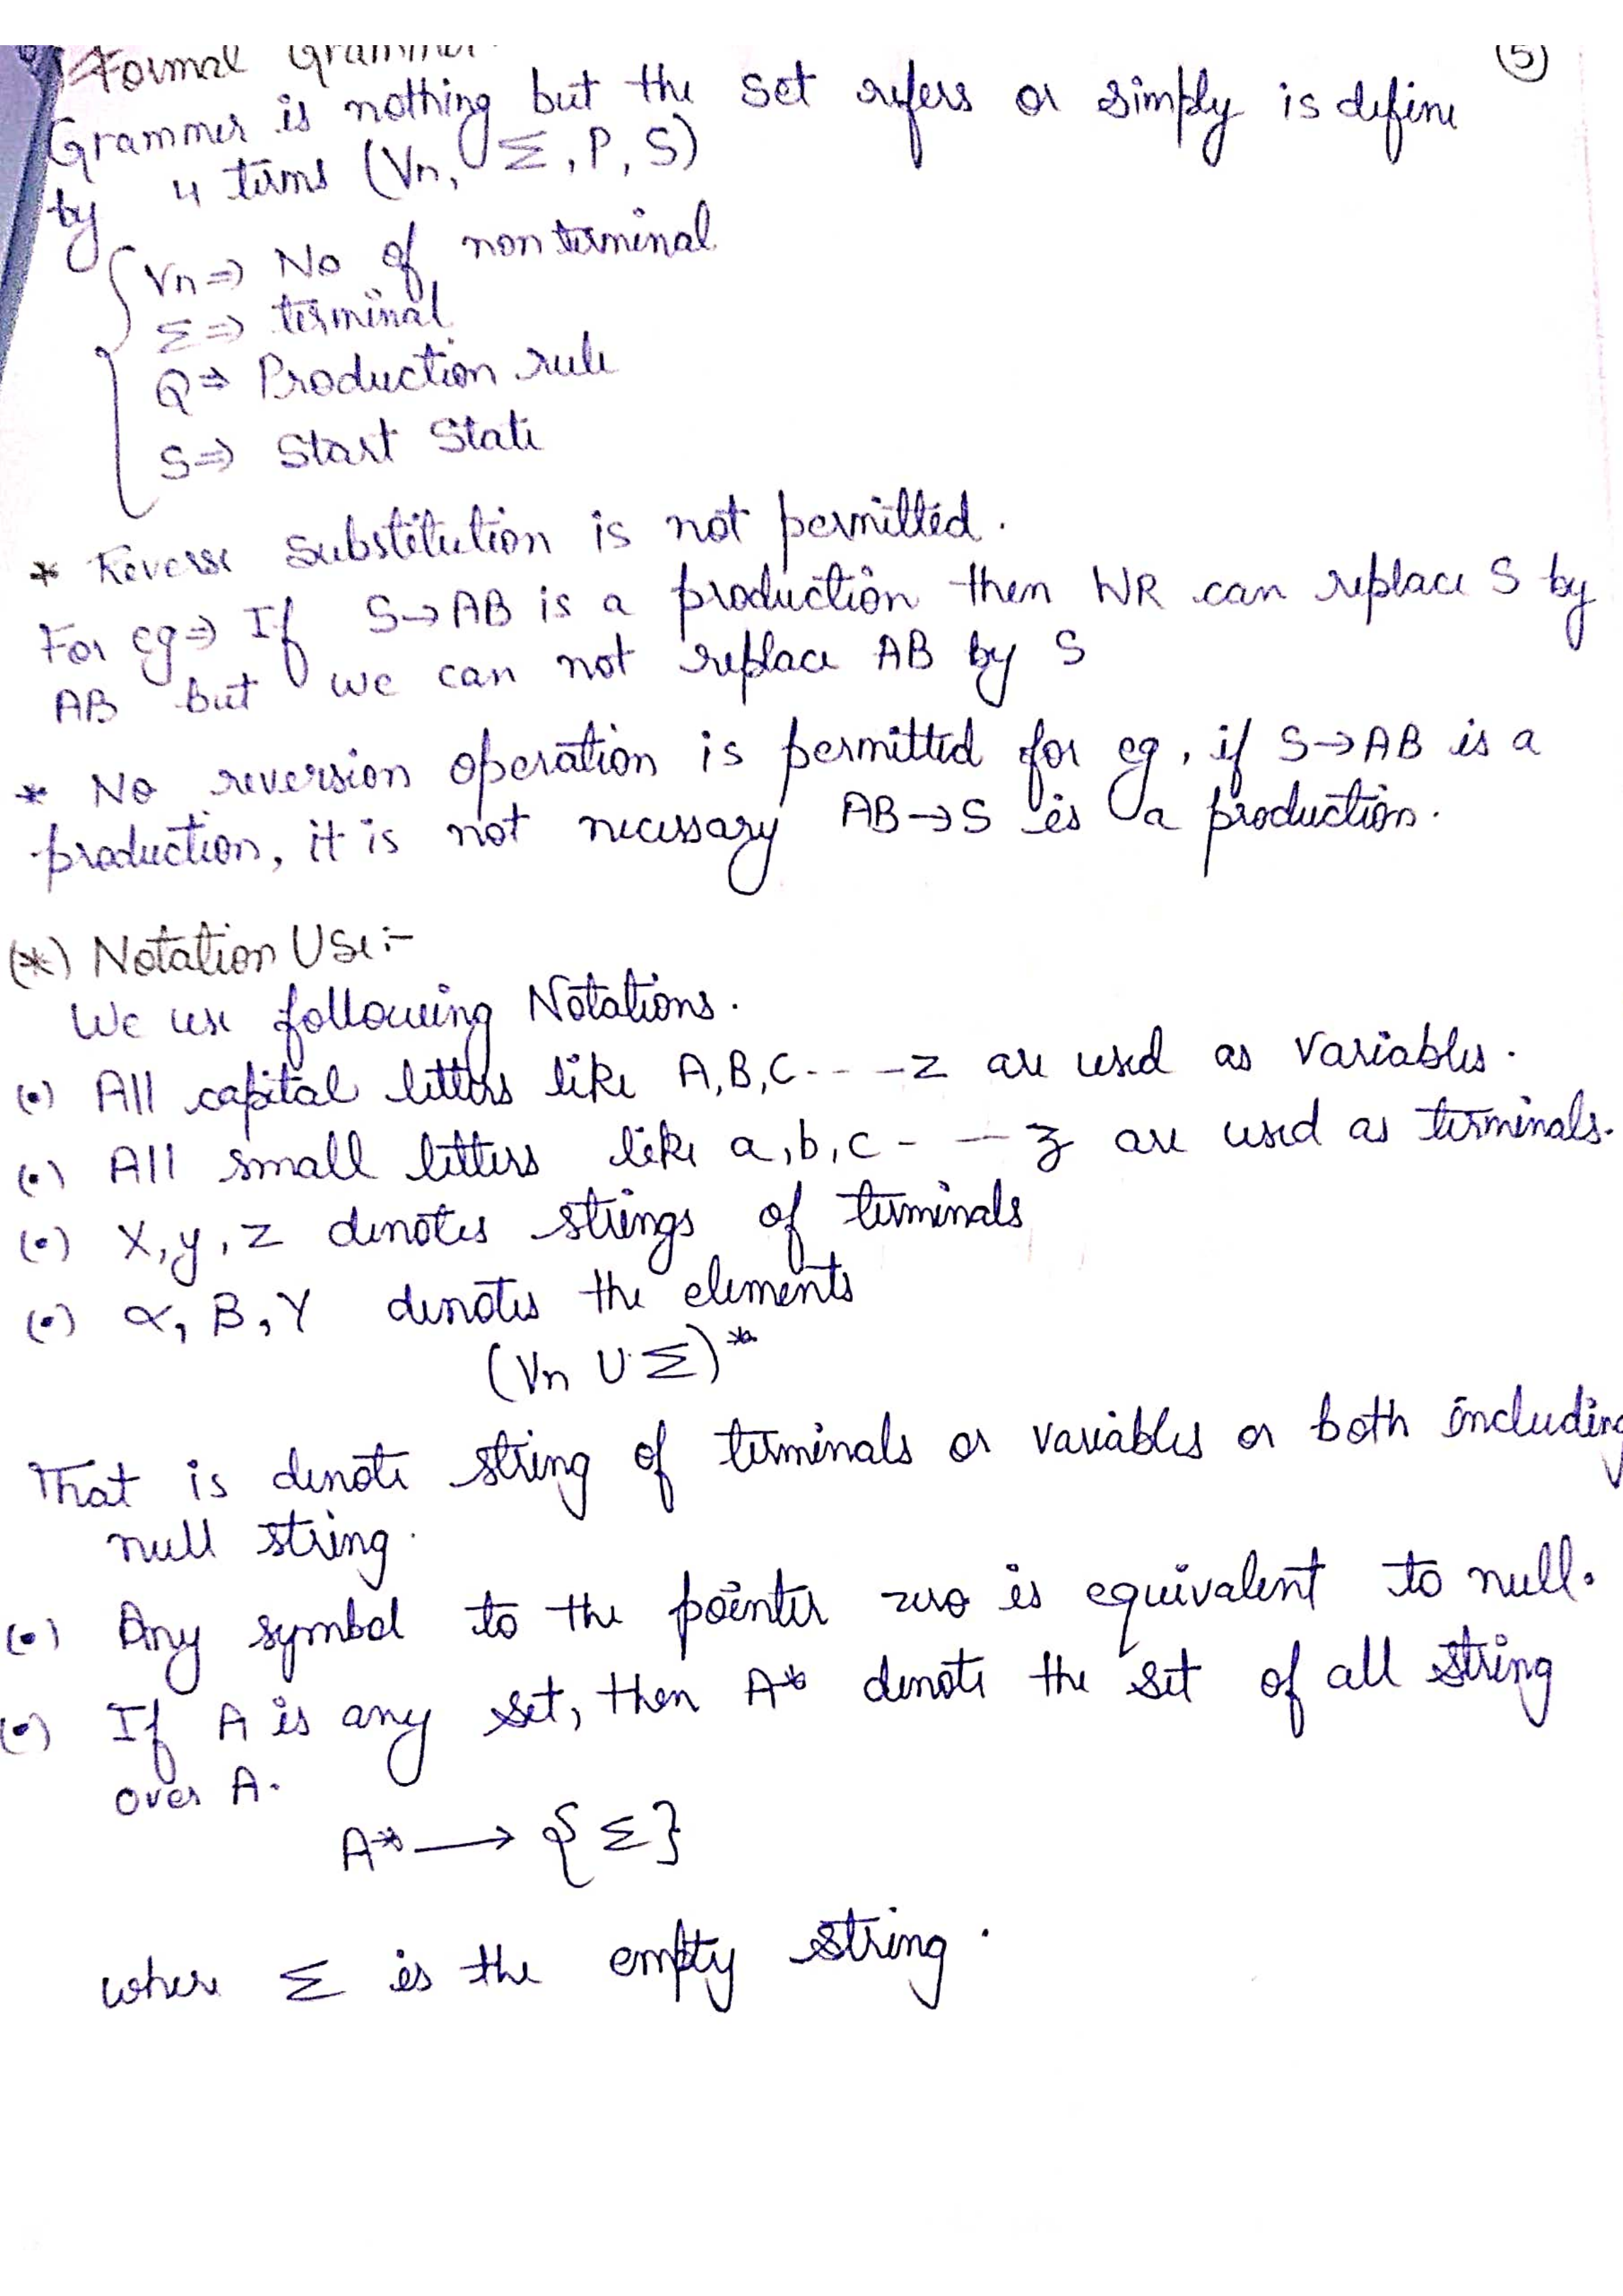 Formal Grammer
(5)
Grammer is nothing but the set refers or simply is define
by 4 terms (Vn, Σ, P, S)
Vn ⇒ No of non terminal
Σ ⇒ terminal
Q ⇒ Production rule
S ⇒ Start State
* Reverse substitution is not permitted.
For eg ⇒ If S→AB is a production then WR can replace S by
AB but we can not replace AB by S
* No reversion operation is permitted for eg, if S→AB is a
production, it is not necessary AB→S is a production.
(*) Notation Use :-
We use following Notations.
(•) All capital letters like A,B,C - - - Z are used as variables.
(•) All small letters like a,b,c - - z are used as terminals.
(•) X,y,z denotes strings of terminals
(•) α, B, Y denotes the elements
(Vn ∪ Σ)*
That is denote string of terminals or variables or both including
null string.
(•) Any symbol to the pointer zero is equivalent to null.
(•) If A is any set, then A* denote the set of all string
over A.
A* ⟶ {Σ}
where Σ is the empty string.